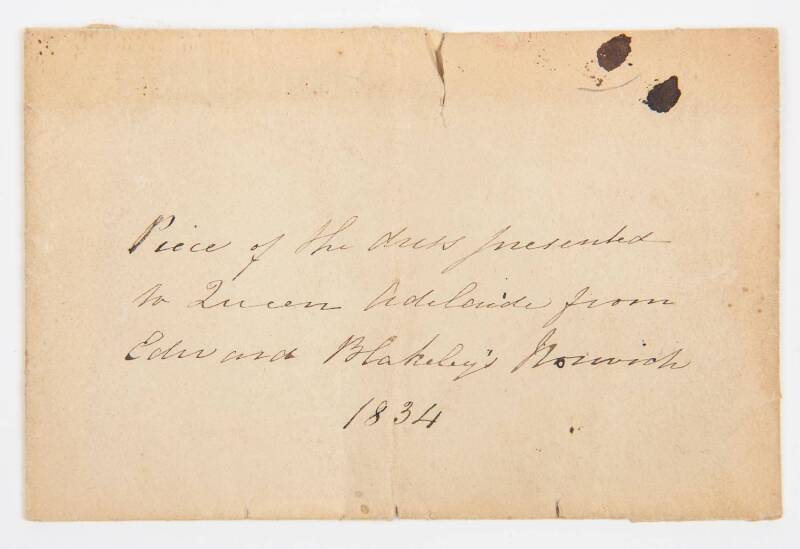 Piece of the dress presented
to Queen Adelaide from
Edward Blakeley's Norwich
1834